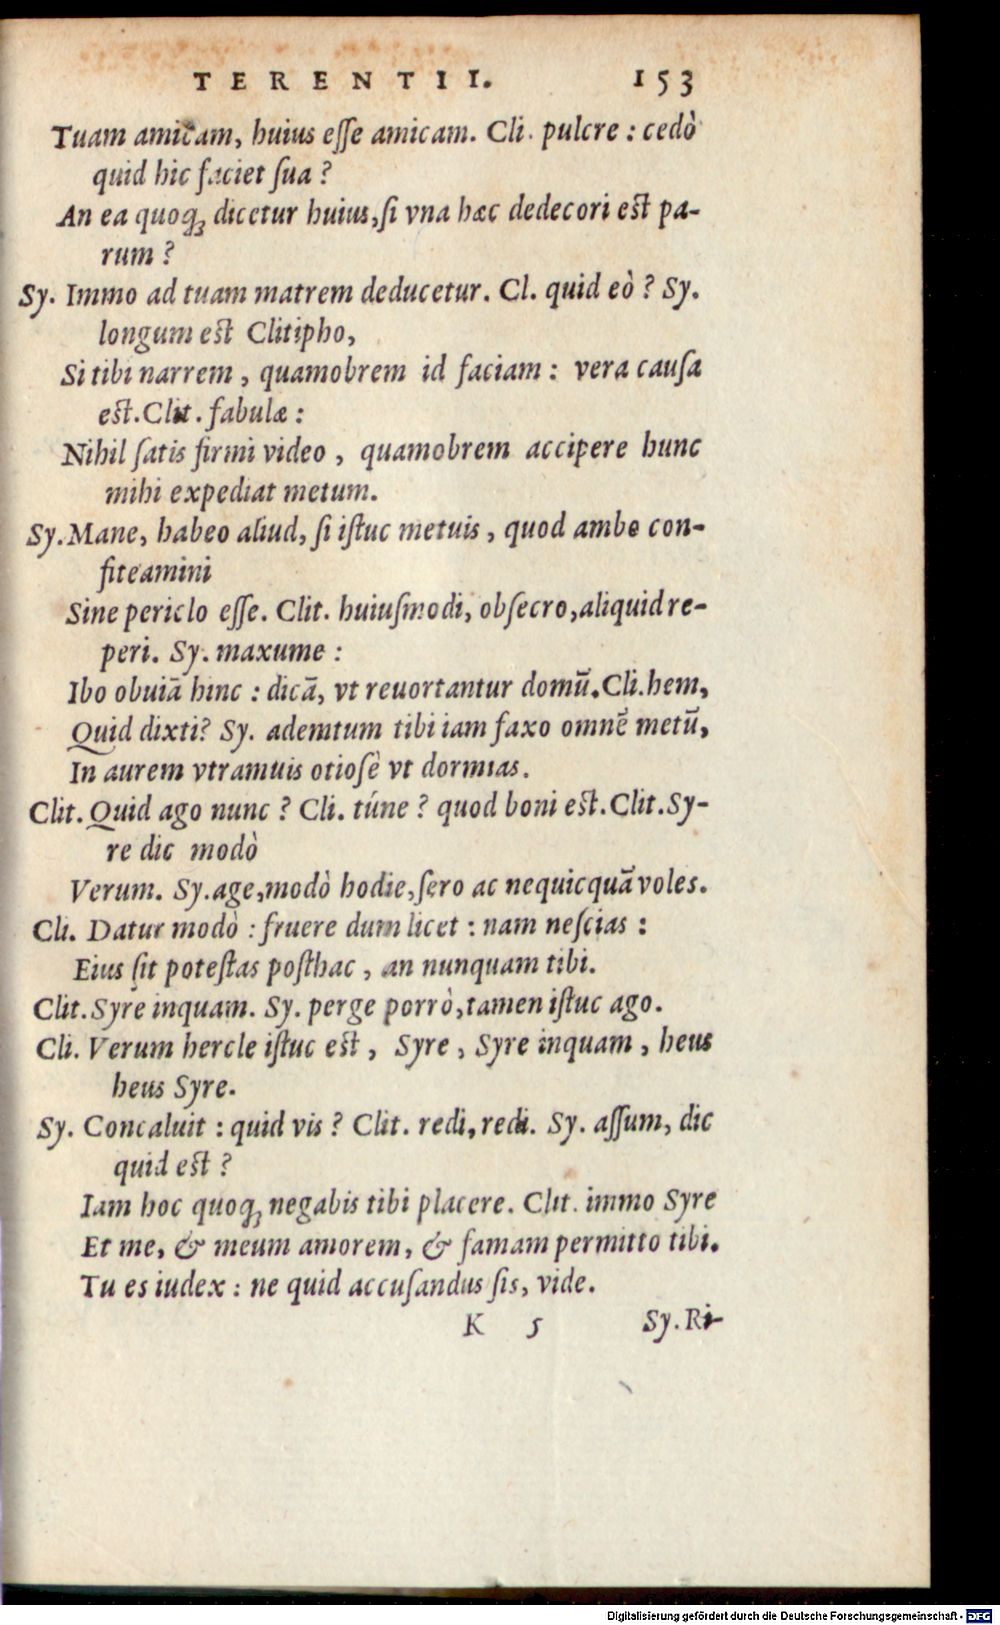 TERENTII. 153
Tuam amicam, huius eſſe amicam. Cli. pulcre : cedò
quid hic faciet ſua ?
An ea quoq́; dicetur huius, ſi vna hæc dedecori eſt pa-
rum ?
Sy. Immo ad tuam matrem deducetur. Cl. quid eò ? Sy.
longum est Clitipho,
Si tibi narrem , quamobrem id faciam : vera cauſa
est. Clit. fabulæ :
Nihil ſatis firmi video , quamobrem accipere hunc
mihi expediat metum.
Sy. Mane, habeo aliud, ſi iſtuc metuis , quod ambo con-
fiteamini
Sine periclo eſſe. Clit. huiuſmodi, obſecro, aliquid re-
peri. Sy. maxume :
Ibo obuiã hinc : dicã, vt reuortantur domũ. Cli. hem,
Quid dixti? Sy. ademtum tibi iam faxo omnẽ metũ,
In aurem vtramuis otioſè vt dormias.
Clit. Quid ago nunc ? Cli. túne ? quod boni est. Clit. Sy-
re dic modò
Verum. Sy. age, modò hodie, ſero ac nequicquã voles.
Cli. Datur modò : fruere dum licet : nam neſcias :
Eius ſit poteſtas poſthac , an nunquam tibi.
Clit. Syre inquam. Sy. perge porrò, tamen iſtuc ago.
Cli. Verum hercle iſtuc est , Syre , Syre inquam , heus
heus Syre.
Sy. Concaluit : quid vis ? Clit. redi, redi. Sy. aſſum, dic
quid est ?
Iam hoc quoq; negabis tibi placere. Clit. immo Syre
Et me, & meum amorem, & famam permitto tibi.
Tu es iudex : ne quid accuſandus ſis, vide.
K 5 Sy. Ri-
Digitalisierung gefördert durch die Deutsche Forschungsgemeinschaft - DFG